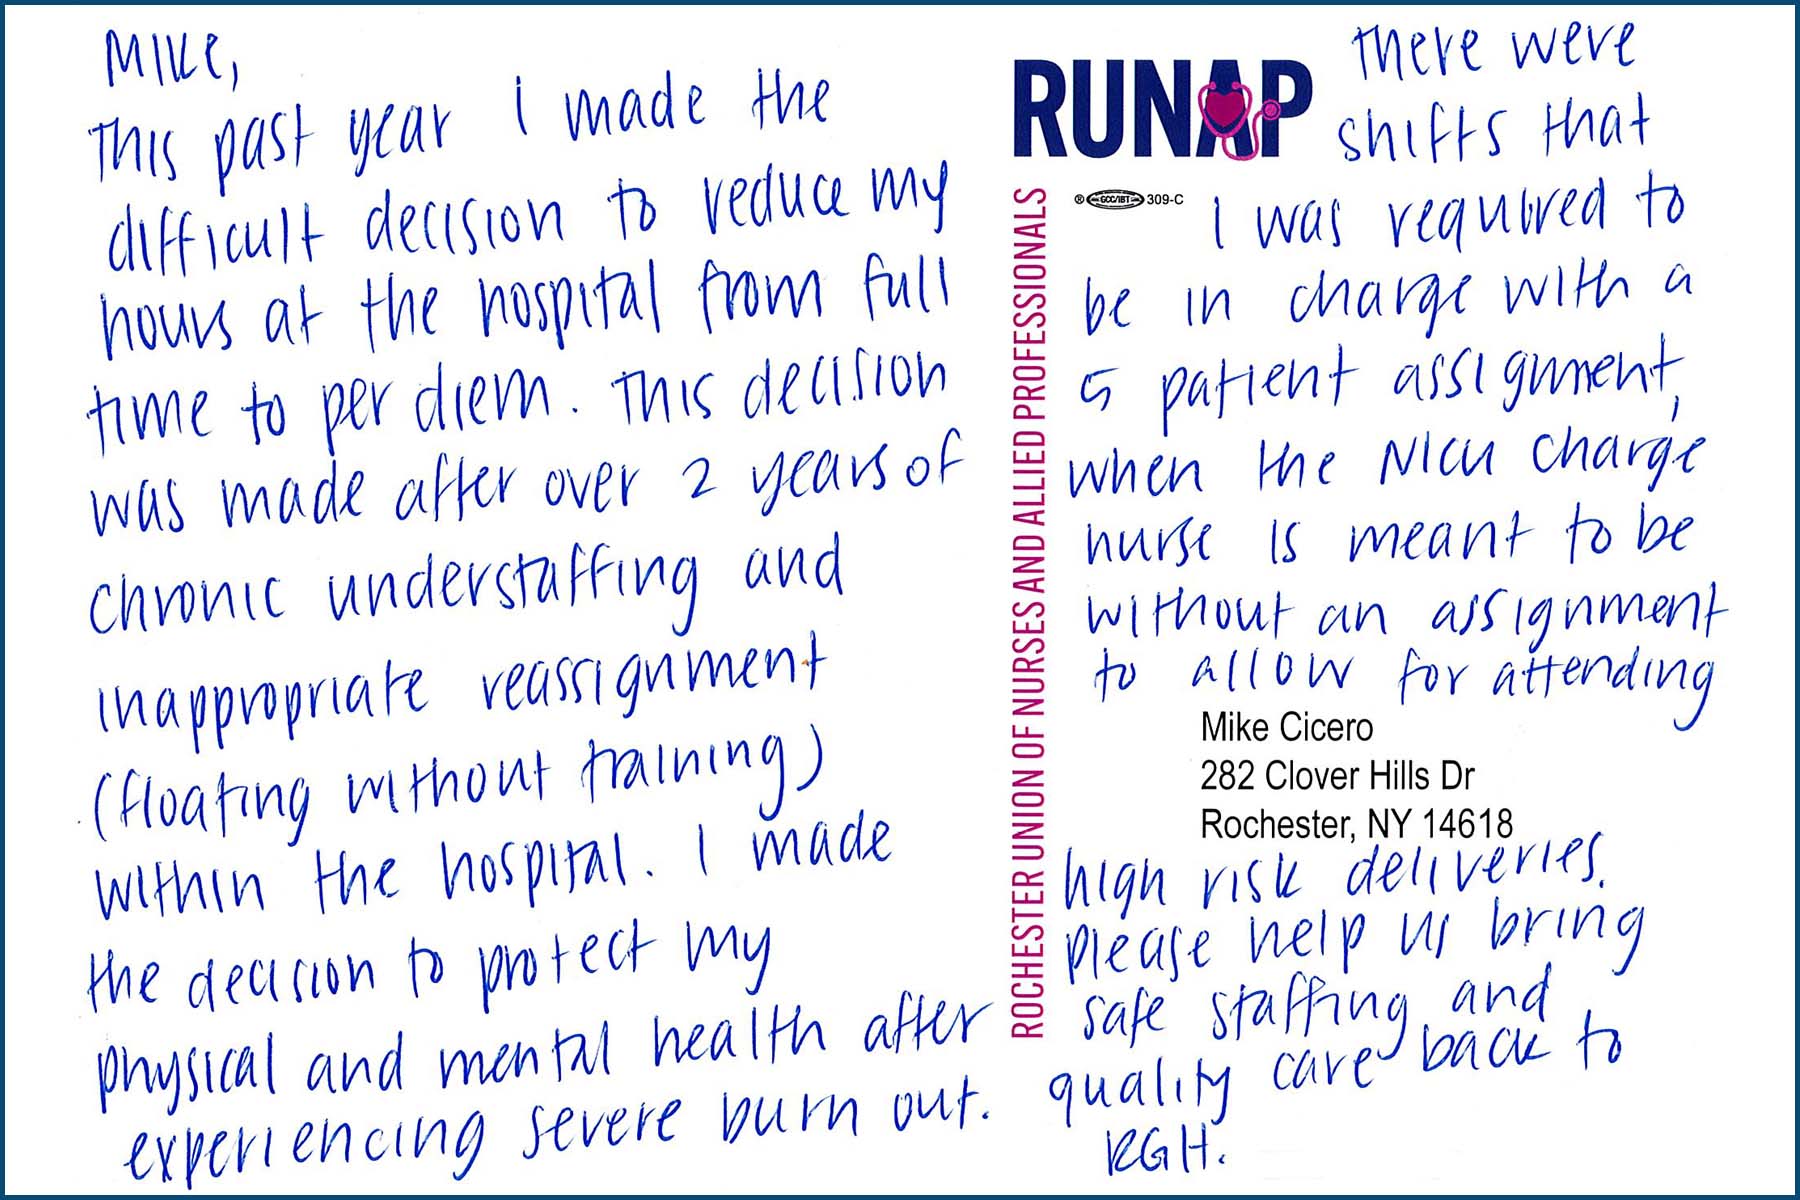 Mike,
This past year I made the
difficult decision to reduce my
hours at the hospital from full
time to per diem. This decision
was made after over 2 years of
chronic understaffing and
inappropriate reassignment
(floating without training)
within the hospital. I made
the decision to protect my
physical and mental health after
experiencing severe burn out.
RUNAP
® GCC/IBT 309-C
ROCHESTER UNION OF NURSES AND ALLIED PROFESSIONALS
There were
shifts that
I was required to
be in charge with a
5 patient assignment,
when the NICU charge
nurse is meant to be
without an assignment
to allow for attending
Mike Cicero
282 Clover Hills Dr
Rochester, NY 14618
high risk deliveries.
Please help us bring
safe staffing and
quality care back to
RGH.